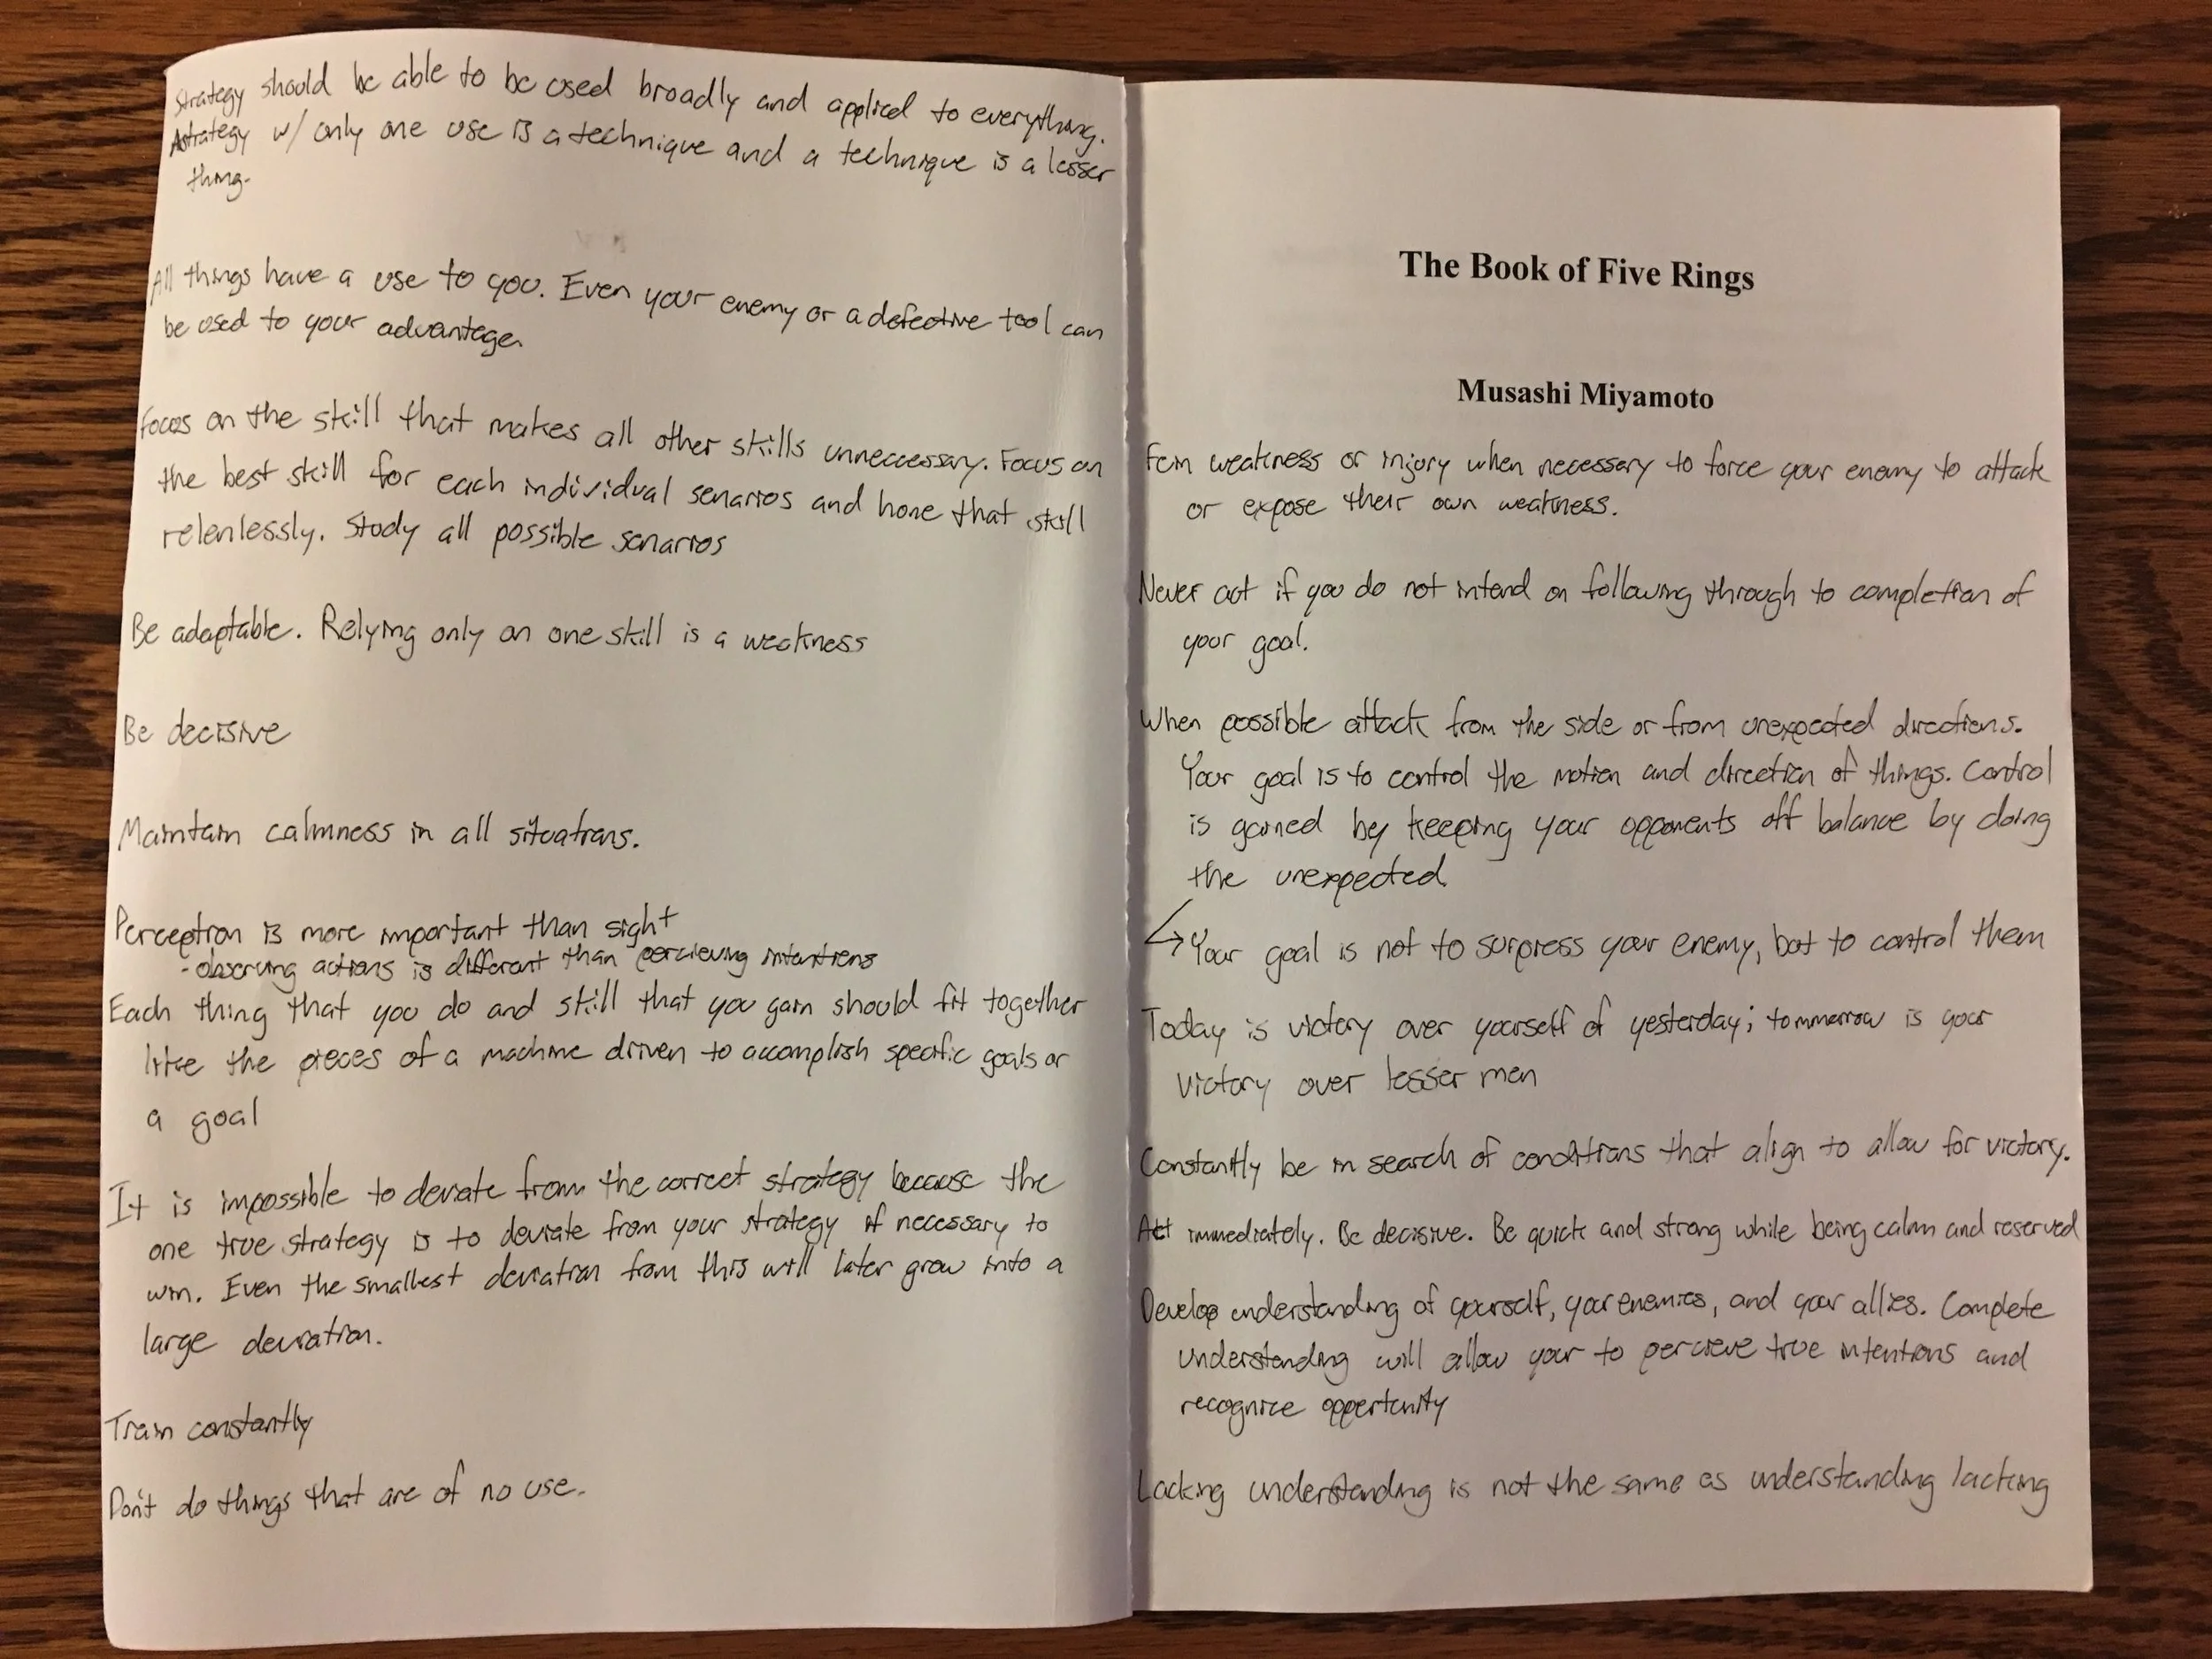 Strategy should be able to be used broadly and applied to everything.
A strategy w/ only one use is a technique and a technique is a lesser
thing.
All things have a use to you. Even your enemy or a defective tool can
be used to your advantage.
Focus on the skill that makes all other skills unneccessary. Focus on
the best skill for each individual senarios and hone that skill
relenlessly. Study all possible senarios
Be adaptable. Relying only on one skill is a weakness
Be decisive
Maintain calmness in all situations.
Perception is more important than sight
- observing actions is different than percieving intentions
Each thing that you do and skill that you gain should fit together
like the pieces of a machine driven to accomplish specific goals or
a goal
It is impossible to deviate from the correct strategy because the
one true strategy is to deviate from your strategy if necessary to
win. Even the smallest deviation from this will later grow into a
large deviation.
Train constantly
Don't do things that are of no use.
The Book of Five Rings
Musashi Miyamoto
Fein weakness or injury when necessary to force your enemy to attack
or expose their own weakness.
Never act if you do not intend on following through to completion of
your goal.
When possible attack from the side or from unexpected directions.
Your goal is to control the motion and direction of things. Control
is gained by keeping your opponents off balance by doing
the unexpected.
↳ Your goal is not to surpress your enemy, but to control them
Today is victory over yourself of yesterday; tommorrow is your
victory over lesser men
Constantly be in search of conditions that align to allow for victory.
Act immediately. Be decisive. Be quick and strong while being calm and reserved
Develop understanding of yourself, your enemies, and your allies. Complete
understanding will allow your to percieve true intentions and
recognize oppertunity
Lacking understanding is not the same as understanding lacking